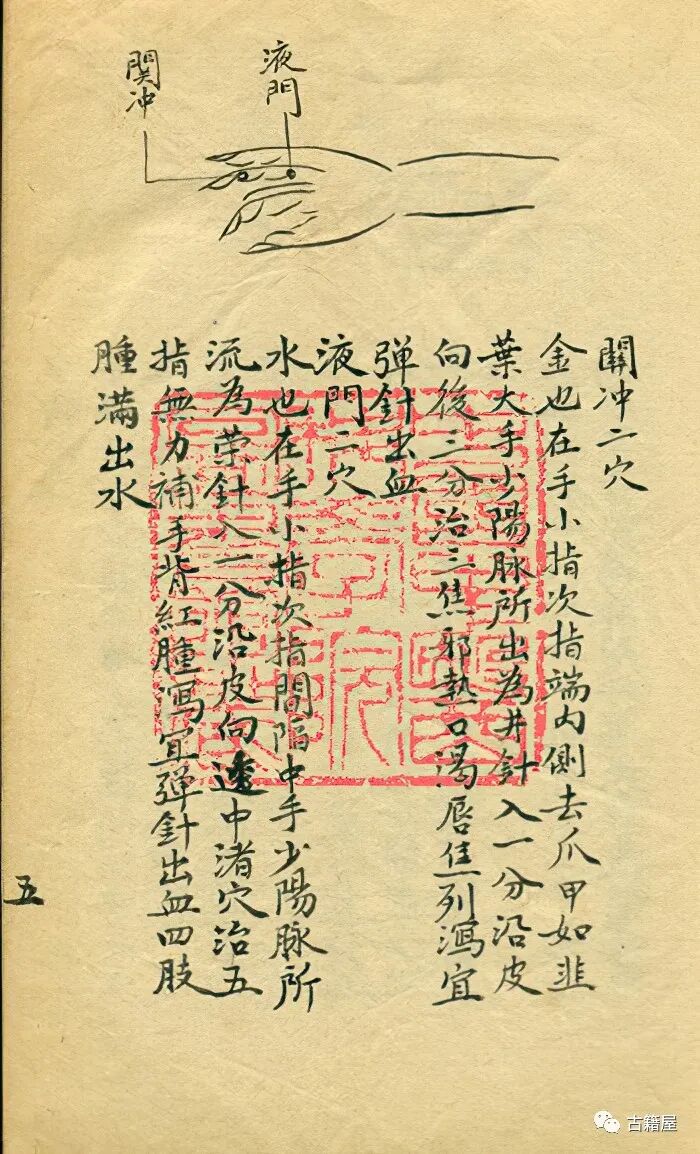 関冲
液門
關冲二穴
金也在手小指次指端內側去爪甲如韭
葉大手少陽脉所出為井針入一分沿皮
向後三分治三焦邪熱口渴唇焦列瀉宜
弹針出血
液門二穴
水也在手小指次指間陷中手少陽脉所
流為荣針入一分沿皮向透中渚穴治五
指無力補手背紅腫瀉宜弹針出血四肢
腫滿出水
五
古籍屋